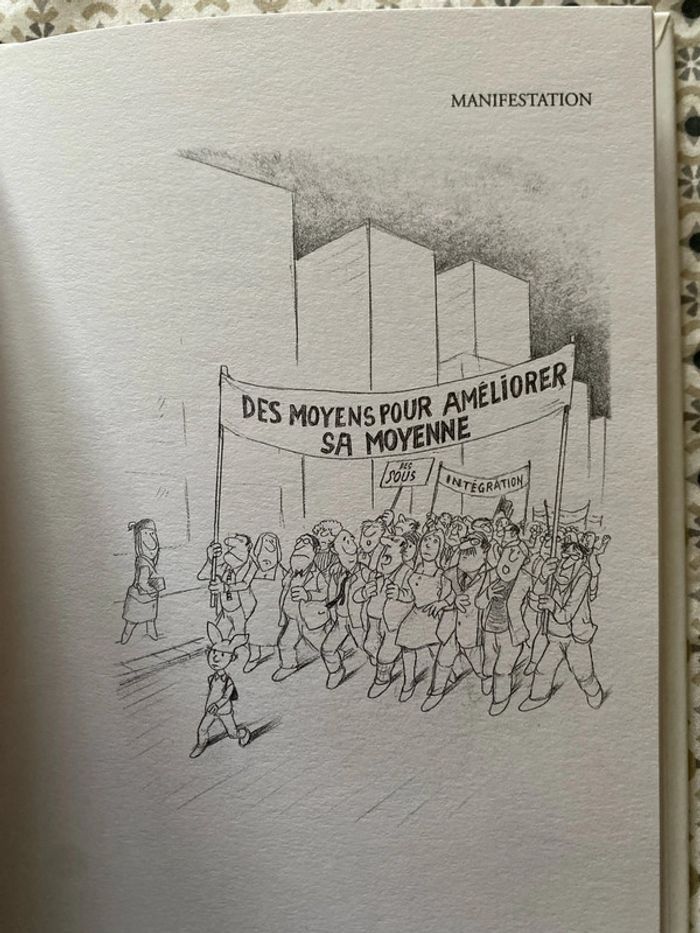 MANIFESTATION
DES MOYENS POUR AMÉLIORER
SA MOYENNE
DES
SOUS
INTÉGRATION